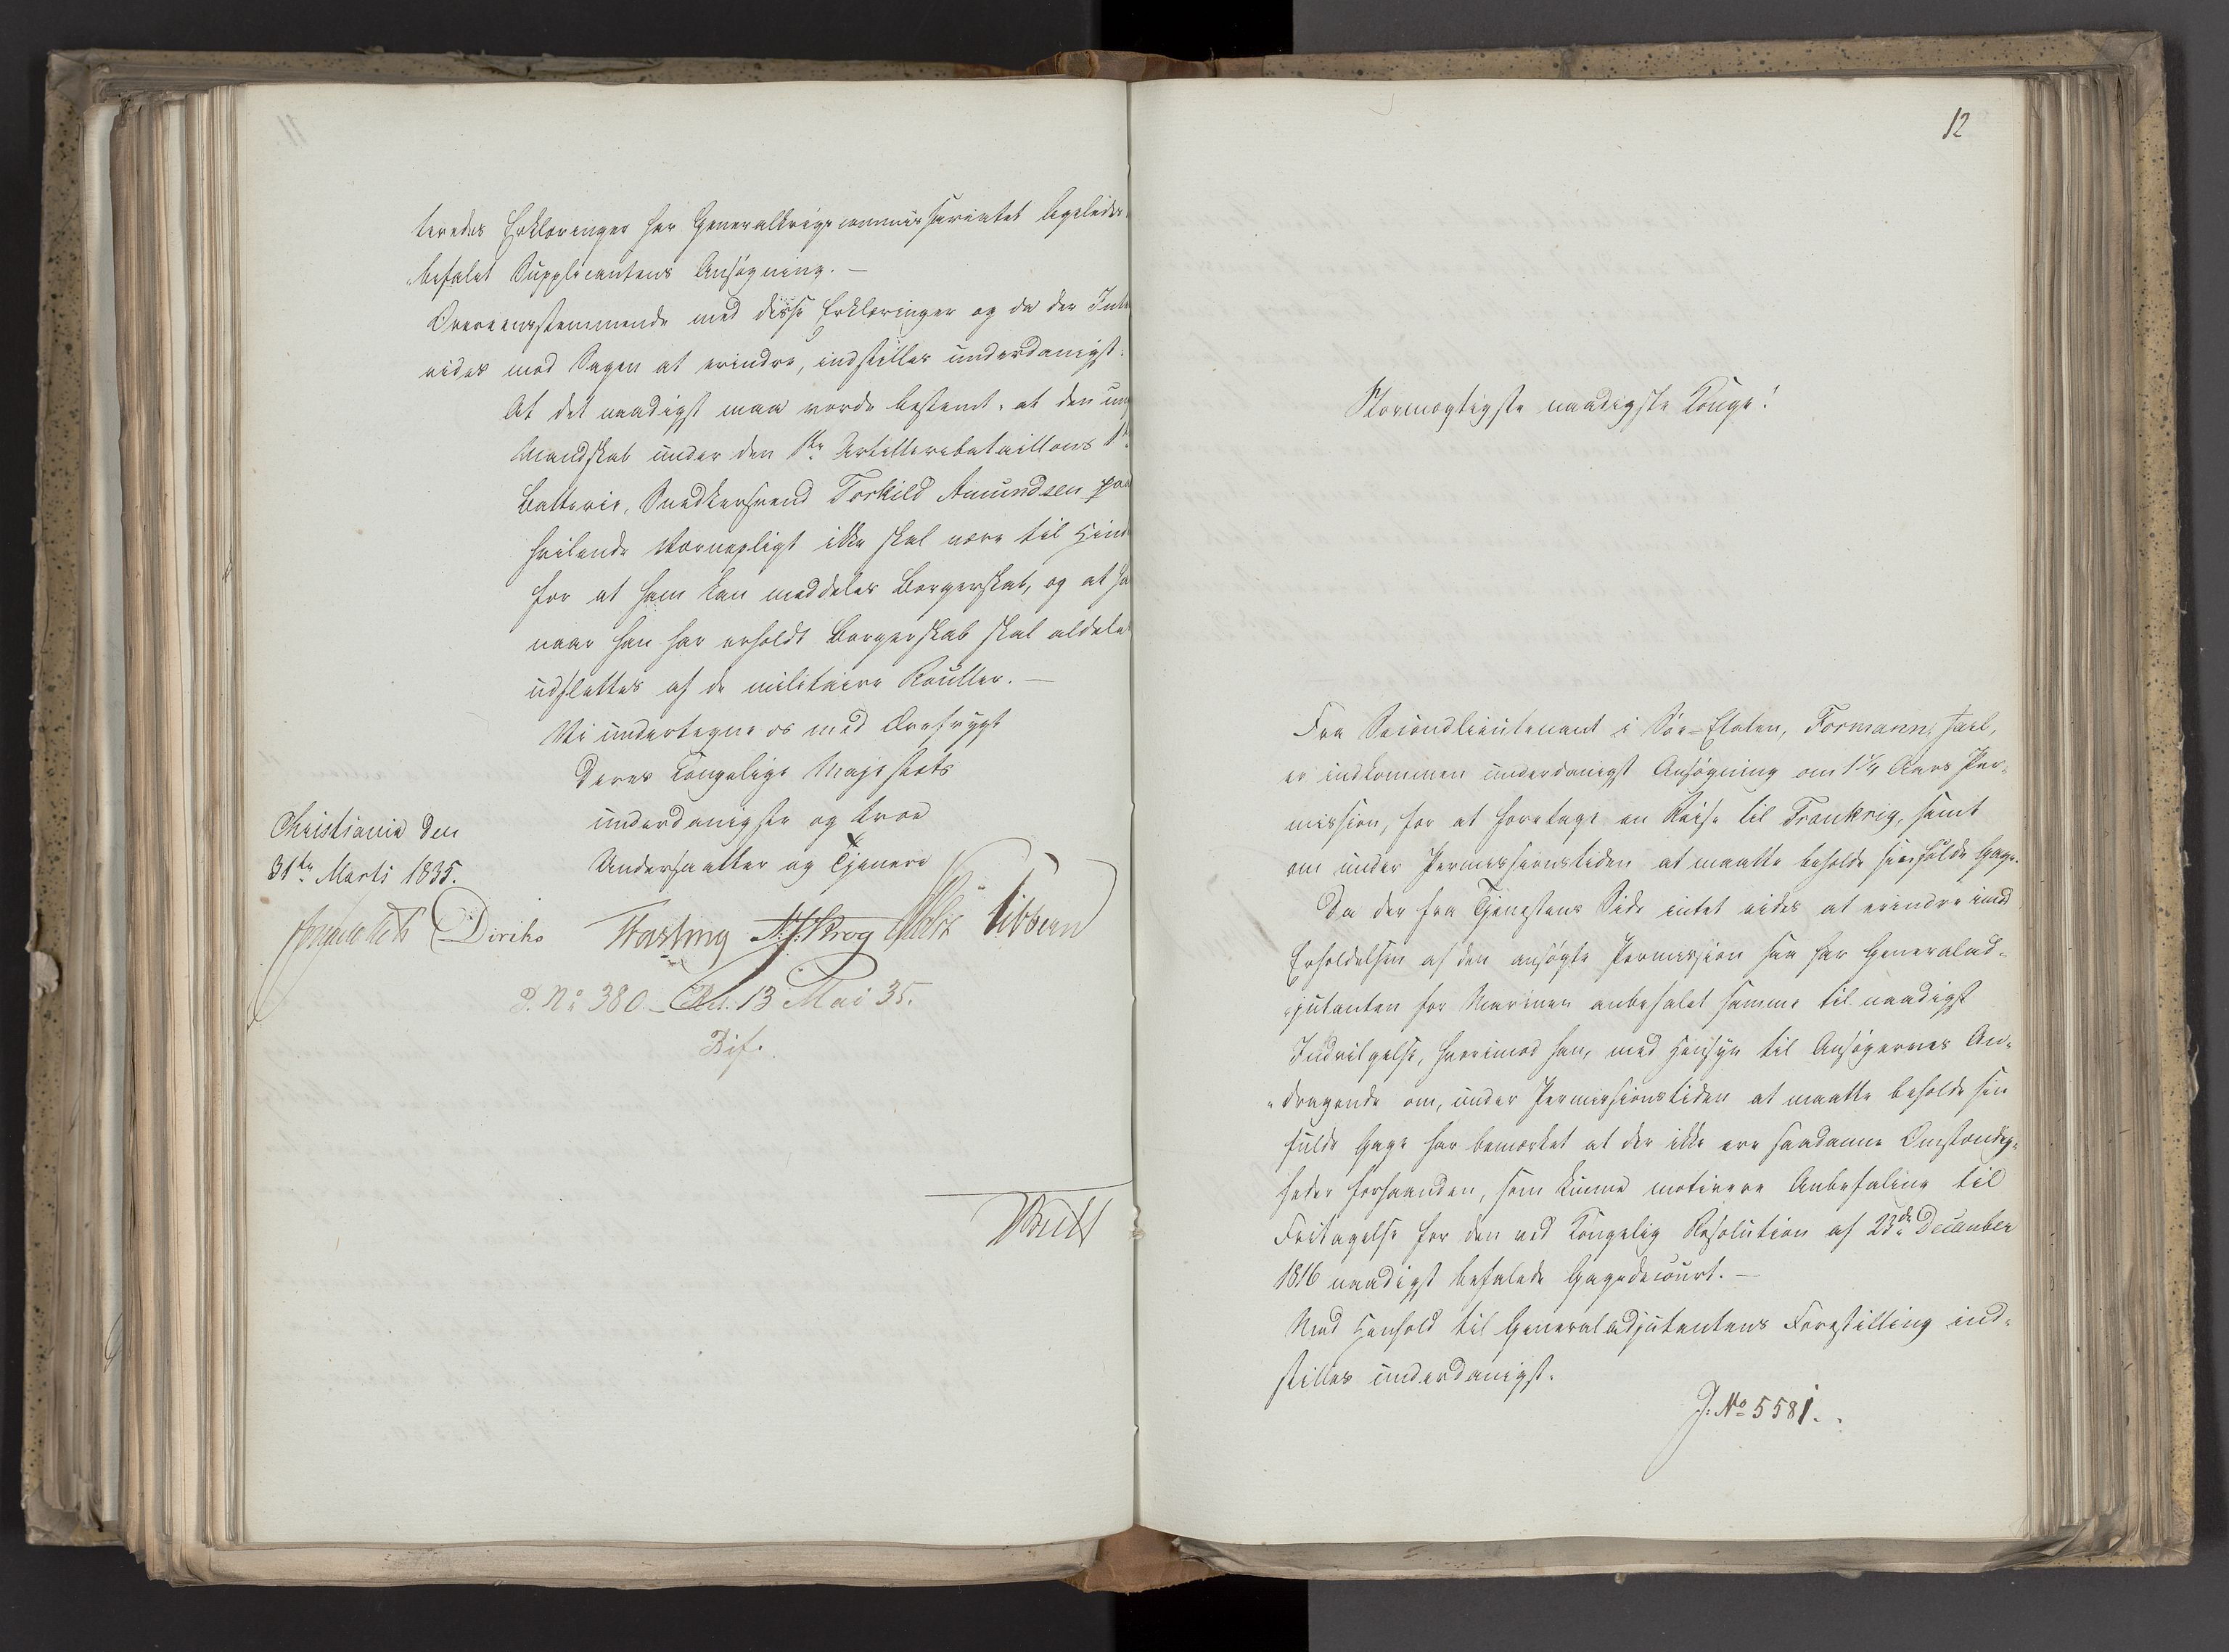 teredes Erklæringer har Generalkrigscommissariatet ligeledes
befalet Supplicantens Ansøgning. —
Overeensstemmende med disse Erklæringer og da der Intet
vides mod Sagen at erindre, indstilles underdanigst:
At det naadigst maa vorde bestemt, at den
Mandskab under den Artilleribataillons 1ste
Batterie, Snedkersvend Torkild Amundsen paa
hvilende Værnepligt ikke skal være til Hinder
for at ham kan meddeles Borgerskab, og at han
naar han har erholdt Borgerskab skal aldeles
udslettes af de militaire Rouller. —
Vi undertegne os med Ærefrygt
Deres Kongelige Majestæts
underdanigste og troe
Undersaatter og Tjenere
Christiania den
31te Marts 1835.
Diriks Fasting Krog Vibe Sibbern
P. No 380. – Res. 13 Mai 35.
Bif.
12
Stormægtigste naadigste Konge!
Fra Secondlieutenant i Søe-Etaten, Formann, Juel,
er indkommen underdanigst Ansøgning om 1 1/4 Aars Per-
mission, for at foretage en Reise til Frankrig, samt
om under Permissionstiden at maatte beholde sin fulde Gage.
Da der fra Tjenestens Side intet vides at erindre imod
Erholdelsen af den ansøgte Permission saa har Generalad-
jutanten for Marinen anbefalet samme til naadigst
Indvilgelse, hvorimod han, med Hensyn til Ansøgernes An-
dragende om, under Permissionstiden at maatte beholde sin
fulde Gage har bemærket at der ikke ere saadanne Omstændig-
heder forhaanden, som kunne motivere Anbefaling til
Fritagelse for den ved Kongelig Resolution af 23de December
1816 naadigst befalede Gagedecourt. —
Med Henhold til Generaladjutantens Forestilling ind-
stilles underdanigst:
J: No 5581.